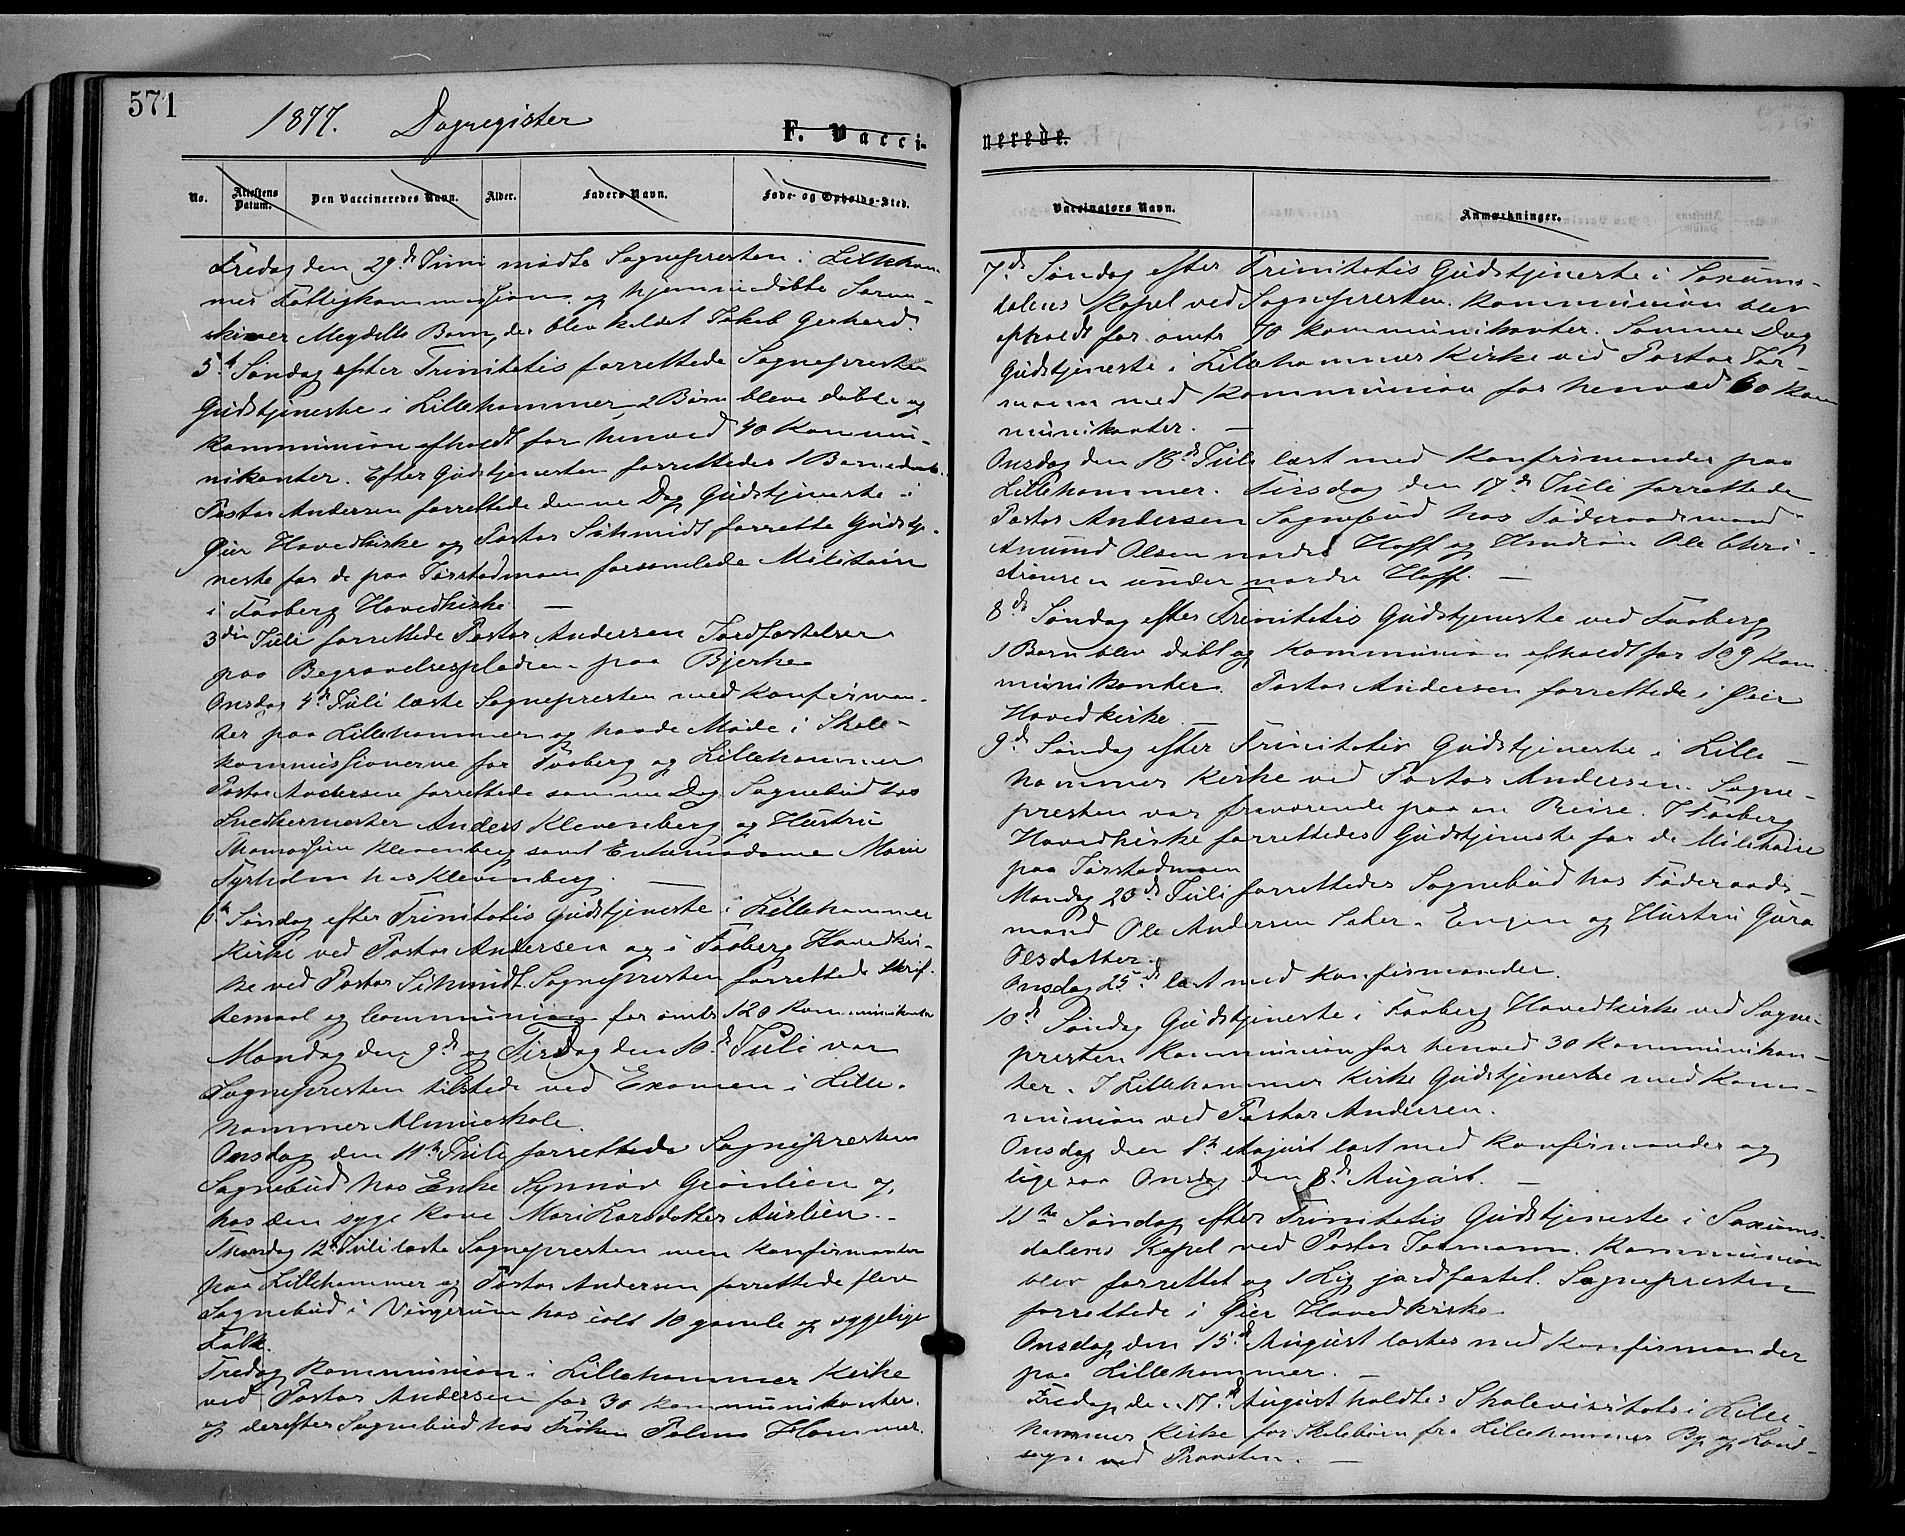 571
1877. Dagregister
F. Vacci-
nerede.
No. Attestens Datum. Den Vaccineredes Navn. Alder. Faders Navn. Føde- og Opholds-Sted.
Vaccinators Navn. Anmærkninger.
Fredag den 29de Juni mødte Sognepresten i Lilleham-
mer Fattigkommission og hjemmedøbte Soren-
skiver Meydells Barn, der blev kaldet Jakob Gerhard.
5te Søndag efter Trinitatis forrettede Sognepresten
Gudstjeneste i Lillehammer, 2 Børn bleve døbte og
Kommunion afholdt for henved 40 Kommu-
nikanter. Efter Gudstjenesten forrettedes 1 Barnedaab.
Pastor Andersen forrettede denne Dag Gudstjeneste i
Øier Hovedkirke og Pastor Schmidt forrette Gudstje-
neste for de paa Jørstadmoen forsamlede Militære
i Faaberg Hovedkirke. —
3die Juli forrettede Pastor Andersen Jordfæstelser
paa Begravelsespladsen paa Bjerke
Onsdag 4de Juli læste Sognepresten med Konfirman-
der paa Lillehammer og havde Møde i Skole-
kommissionerne for Faaberg og Lillehammer
Pastor Andersen forrettede samme Dag Sognebud hos
Snedkermester Anders Klevenberg og Hustru
Thomassine Klevenberg samt Enkemadame Marie
Fyrholm hos Klevenberg. —
6te Søndag efter Trinitatis Gudstjeneste i Lillehammer
Kirke ved Pastor Andersen og i Faaberg Hovedkir-
ke ved Pastor Schmidt. Sognepresten forrettede Skrif-
temaal og Communion for omtr 120 Kommunikanter
Mandag den 9de og Tirsdag den 10de Juli var
Sognepresten tilstede ved Examen i Lille-
hammer Almueskole.
Onsdag den 11te Juli forrettede Sognepresten
Sognebud hos Enke Synnøv Gjørlien og
hos den syge Kone Mari Larsdatter Aurlien. -
Thorsdag 12te Juli læste Sognepresten med Konfirmanter
paa Lillehammer og Pastor Andersen forrettede flere
Sognebud i Vingerum hos ialt 10 gamle og sygelige
Folk.
Fredag Kommunion i Lillehammer Kirke
ved Pastor Andersen for 30 Kommunikanter.
og derefter Sognebud hos Frøken Hammer.
7de Søndag efter Trinitatis Gudstjeneste i Saxums-
dalens Kapel ved Sognepresten. Kommunion blev
afholdt for omtr 70 Kommunikanter. Samme Dag
Gudstjeneste i Lillehammer Kirke ved Pastor Tar-
mann med Kommunion for henved 60 Kom
munikanter. —
Onsdag den 18de Juli læst med Konfirmander paa
Lillehammer. Tirsdag den 17de Juli forrettede
Pastor Andersen Sognebud hos Føderaadsmand
Amund Olsen nordre Hoff og Husmand Ole Chri-
stiansen under nordre Hoff. —
8de Søndag efter Trinitatis Gudstjeneste ved Faaberg
1 Barn blev døbt og Kommunion afholdt for 109 Kom
munikanter. Pastor Andersen forrettede i Øier
Hovedkirke. —
9de Søndag efter Trinitatis Gudstjeneste i Lille-
hammer Kirke ved Pastor Andersen. Sogne-
presten var fraværende paa en Reise. I Faaberg
Hovedkirke forrettedes Gudstjeneste for de Militære
paa Jørstadmoen
Mandag 23de Juli forrettedes Sognebud hos Føderaads-
mand Ole Andersen Sæter-Engen og Hustru Guro
Olsdatter.
Onsdag 25de læst med Konfirmander.
10de Søndag Gudstjeneste i Faaberg Hovedkirke ved Sogne-
presten Kommunion for henved 30 Kommunikan-
ter. I Lillehammer Kirke Gudstjeneste med Kom-
munion ved Pastor Andersen.
Onsdag den 1ste August læst med Konfirmander og
ligesaa Onsdag den 8de August. —
11te Søndag efter Trinitatis Gudstjeneste i Saxums-
dalens Kapel ved Pastor Tarmann. Kommunion
blev forrettet og 1 Lig jordfæstet. Sognepresten
forrettede i Øier Hovedkirke
Onsdag den 15de August læstes med Konfirmander
paa Lillehammer. —
Fredag den 17de August holdtes Skolevisitats i Lille-
hammer Kirke for Skolebørn fra Lillehammer By og Land-
sogn ved Provsten. —